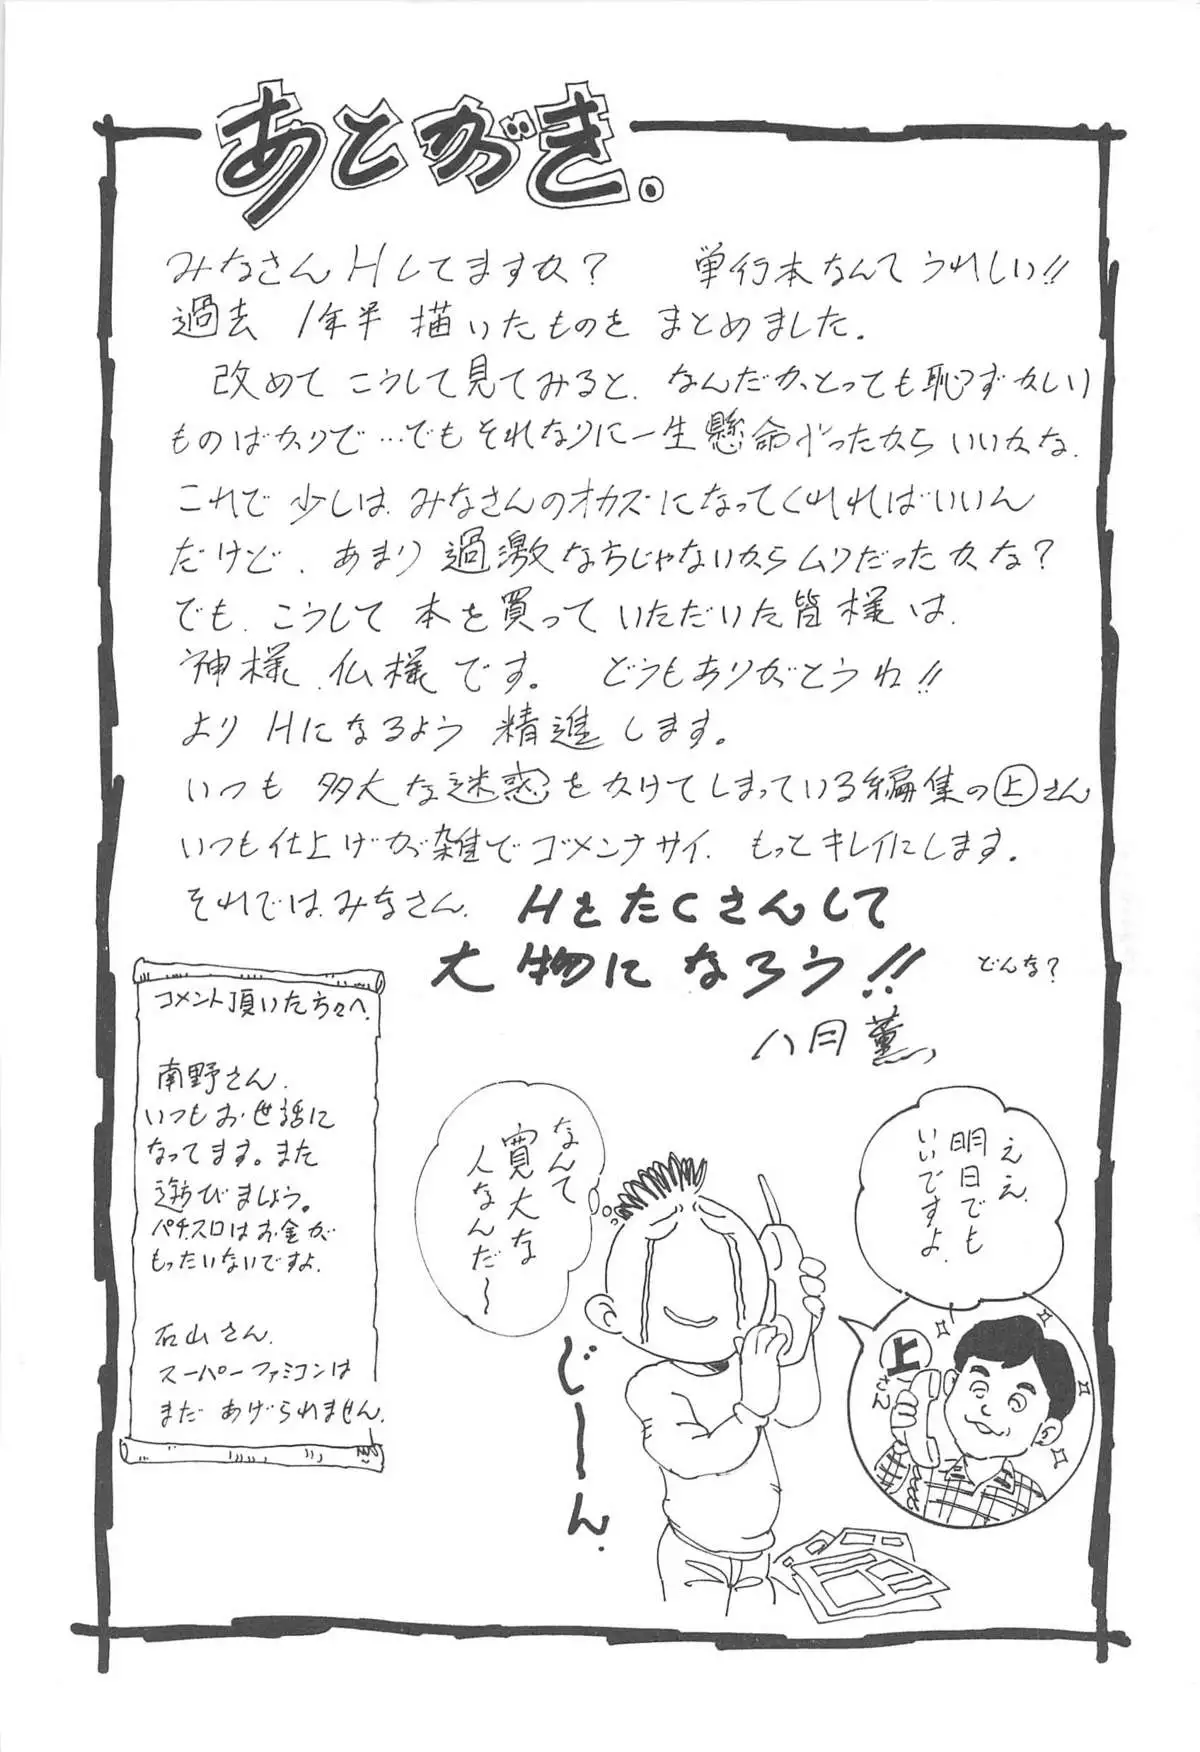 あとがき.
みなさんHしてますか? 単行本なんてうれしい!!
過去1年半描いたものをまとめました.
改めてこうして見てみると、なんだかとっても恥ずかしい
ものばかりで…でもそれなりに一生懸命やったからいいかな.
これで少しはみなさんのオカズになってくれればいいん
だけど、あまり過激な方じゃないからムリだったかな?
でも、こうして本を買っていただいた皆様は
神様、仏様です。どうもありがとうね!!
よりHになるよう精進します。
いつも多大な迷惑をかけてしまっている編集の㊤さん
いつも仕上げが雑でゴメンナサイ. もっとキレイにします.
それでは、みなさん. Hをたくさんして
大物になろう!! どんな?
八月薫
コメント頂いた方々へ.
南野さん.
いつもお世話に
なってます。また
遊びましょう。
パチスロはお金が
もったいないですよ.
石山さん.
スーパーファミコンは
まだあげられません.
ええ.
明日でも
いいですよ.
上
さん
なんて
寛大な
人なんだ〜
じーん.